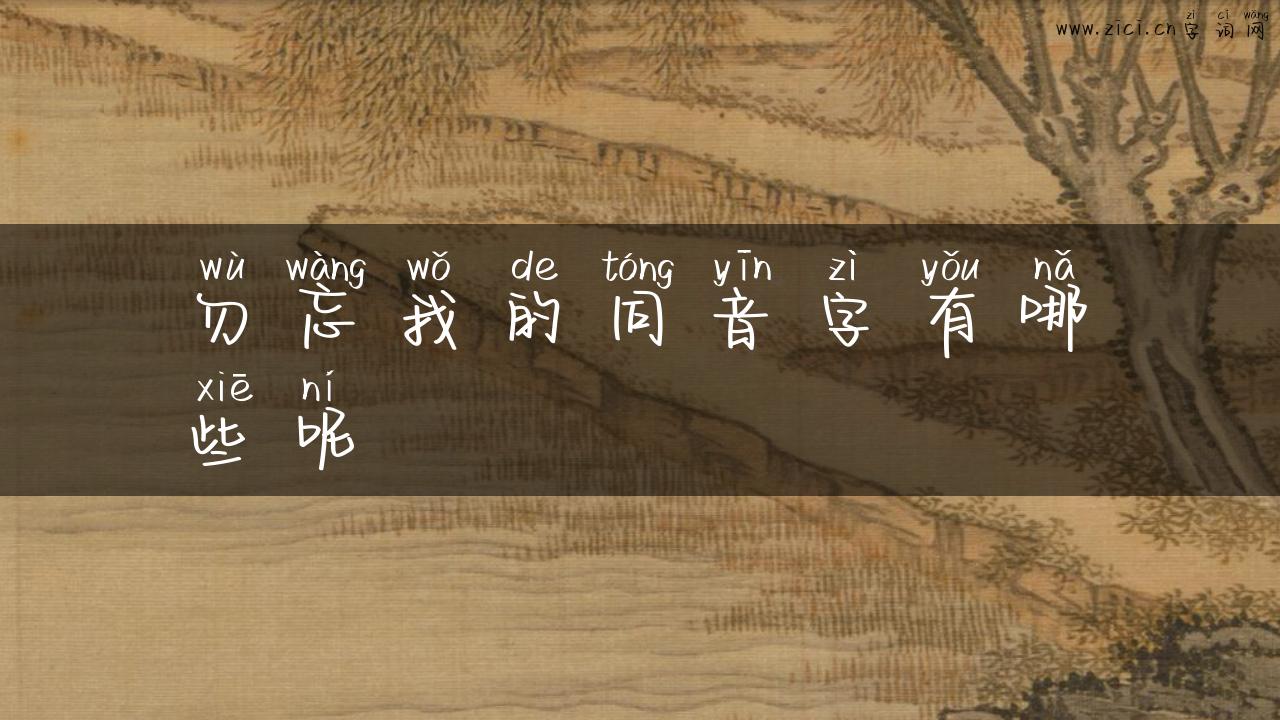 zì cí wǎng
www.zici.cn 字 词 网
wù wàng wǒ de tóng yīn zì yǒu nǎ
勿 忘 我 的 同 音 字 有 哪
xiē ní
些 呢